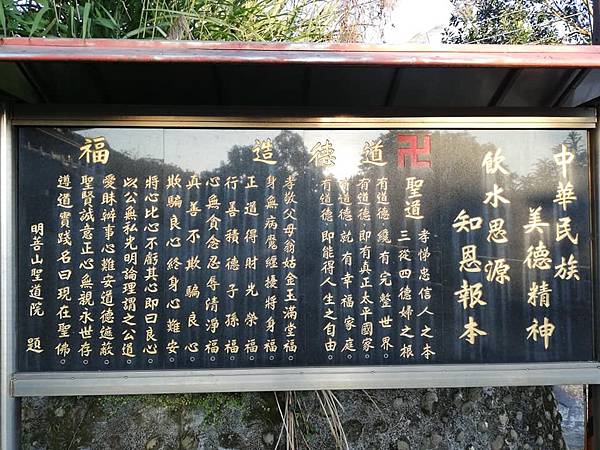 中華民族
美德精神
飲水思源
知恩報本
卍 道德造福
聖道
孝悌忠信人之本
三從四德婦之根
有道德纔有完整世界。
有道德即有真正太平國家。
有道德就有幸福家庭。
有道德即能得人生之自由。
孝敬父母翁姑金玉滿堂福。
身無病魔纏擾將身福。
正道得財光榮福。
行善積德子孫福。
心無貪念忍辱清淨福。
真善不欺騙良心
欺騙良心終身心難安。
將心比心不虧其心即曰良心。
以公無私光明論理謂之公道。
愛昧辦事心難安道德遮蔽。
聖賢誠意正心無親永世存。
遵道實踐名曰現在聖佛。
明善山聖道院 題